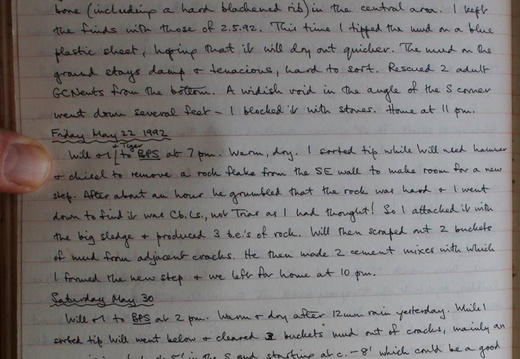 bone (including a hard blackened rib) in the central area. I kept
the finds with those of 2.5.92. This time I tipped the mud on a blue
plastic sheet, hoping that it will dry out quicker. The mud on the
ground stays damp & tenacious, hard to sort. Rescued 2 adult
GCNewts from the bottom. A widish void in the angle of the S corner
went down several feet – I blocked it with stones. Home at 11 pm.
Friday May 22 1992
Will & I & Tiger to BPS at 7 pm. Warm, dry. I sorted tip while Will used hammer
& chisel to remove a rock flake from the SE wall to make room for a new
step. After about an hour he grumbled that the rock was hard & I went
down to find it was Cb.Ls., not Trias as I had thought! So I attacked it with
the big sledge & produced 3 b.c's of rock. Will then scraped out 2 buckets
of mud from adjacent cracks. He then made 2 cement mixes with which
I formed the new step & we left for home at 10 pm.
Saturday May 30
Will & I to BPS at 2 pm. Warm & dry after 12mm rain yesterday. While I
sorted tip Will went below & cleared 3 buckets mud out of cracks, mainly an
in the S and starting at c. – 8' which could be a good